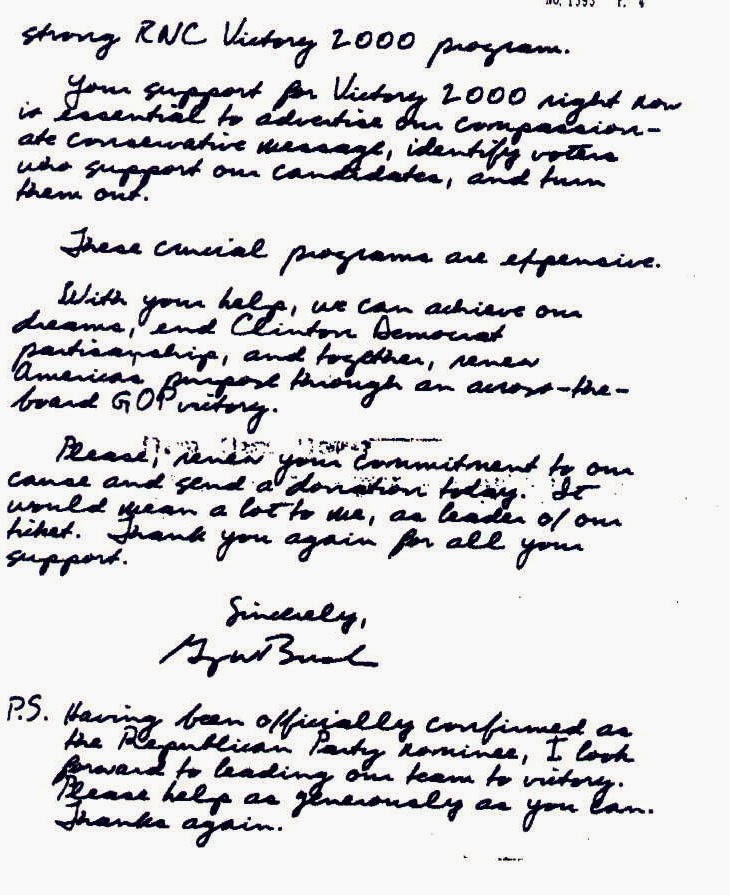 NO. 1393 P. 4
strong RNC Victory 2000 program.
Your support for Victory 2000 right now
is essential to advertise our compassion-
ate conservative message, identify voters
who support our candidates, and turn
them out.
These crucial programs are expensive.
With your help, we can achieve our
dreams, end Clinton Democrat
partisanship, and together, renew
Americas purpose through an across-the-
board GOP victory.
Please, renew your commitment to our
cause and send a donation today. It
would mean a lot to me, as leader of our
ticket. Thank you again for all your
support.
Sincerely,
George W Bush
P.S. Having been officially confirmed as
the Republican Party nominee, I look
forward to leading our team to victory.
Please help as generously as you can.
Thanks again.